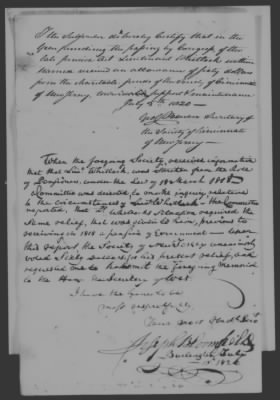 I The Subscriber do hereby Certify that in the
Year preceding the passing by Congress of the
late pension Act Lieutenant Whitlock within
Named received an allowance of sixty dollars
from the charitable funds of the Society of Cincinnati
of New Jersey, towards his support & maintenance
July 4th 1820 —
Secretary of
the Society of Cincinnati of
New Jersey —
When the foregoing Society, received information
that that Lieut Whitlock, was Stricken from the Role
of Pensioners, under the Law of 18 March 1818 a
Committee was directed to make inquiry relative
to the circumstances of Lieut Whitlock — the Committee
reported, that his situation required the
same relief, that was given to him, previous to
receiving in 1818 a pension of Government — upon
this report, the Society of New Jersey unanimously
voted Sixty dollars, for his present relief, and
requested me to transmit the foregoing Memorial
to the Hon. the Secretary of War.
I have the honor to be
most respectfully
Your most Obedt Servt
Joseph Bloomfield
Burlington July